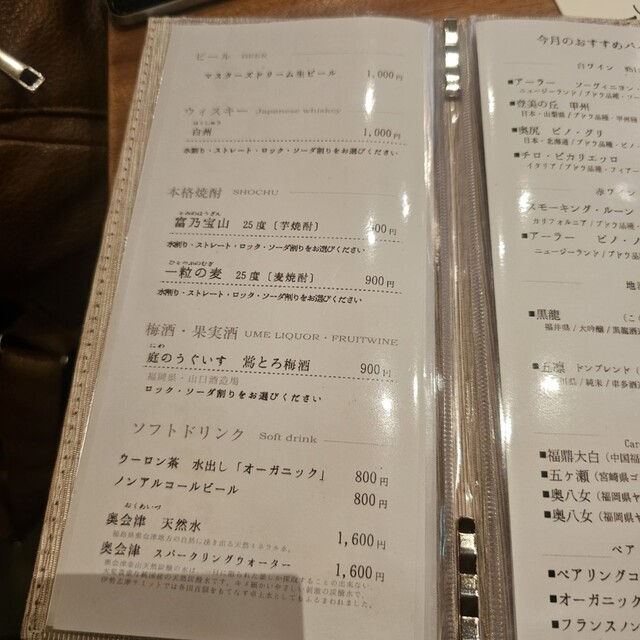 ビール BEER
マスターズドリーム生ビール 1,000円
ウィスキー Japanese whiskey
はくしゅう
白州 1,000円
水割り・ストレート・ロック・ソーダ割りをお選びください
本格焼酎 SHOCHU
とみのほうざん
富乃宝山 25度〔芋焼酎〕 00円
水割り・ストレート・ロック・ソーダ割りをお選びください
ひとつぶのむぎ
一粒の麦 25度〔麦焼酎〕 900円
水割り・ストレート・ロック・ソーダ割りをお選びください
梅酒・果実酒 UME LIQUOR・FRUITWINE
にわ
庭のうぐいす 鶯とろ梅酒 900円
福岡県・山口酒造場
ロック・ソーダ割りをお選びください
ソフトドリンク Soft drink
ウーロン茶 水出し「オーガニック」 800円
ノンアルコールビール 800円
おくあいづ
奥会津 天然水 1,600円
奥会津 スパークリングウォーター 1,600円
今月のおすすめ
白ワイン
■アーラー ソーヴィニヨン・
ニュージーランド/ブドウ品種・ソー
■登美の丘 甲州
日本・山梨県/ブドウ品種・甲州種
■奥尻 ピノ・グリ
日本・北海道/ブドウ品種・ピノ・
■チロ・ビカリエッロ
イタリア/ブドウ品種・フィアー
赤ワイン
スモーキング・ルーン
カリフォルニア/ブドウ品種・
■アーラー ピノ・
ニュージーランド/ブドウ品種・
地酒
■黒龍
福井県/大吟醸/黒龍酒造
■五凛 トンブレンド
川県/純米/車多酒造
■福鼎大白(中国福
■五ヶ瀬(宮崎県ゴ
■奥八女(福岡県ヤ
■奥八女(福岡県ヤ
ペア
■ペアリングコ
■オーガニック
■フランスノン